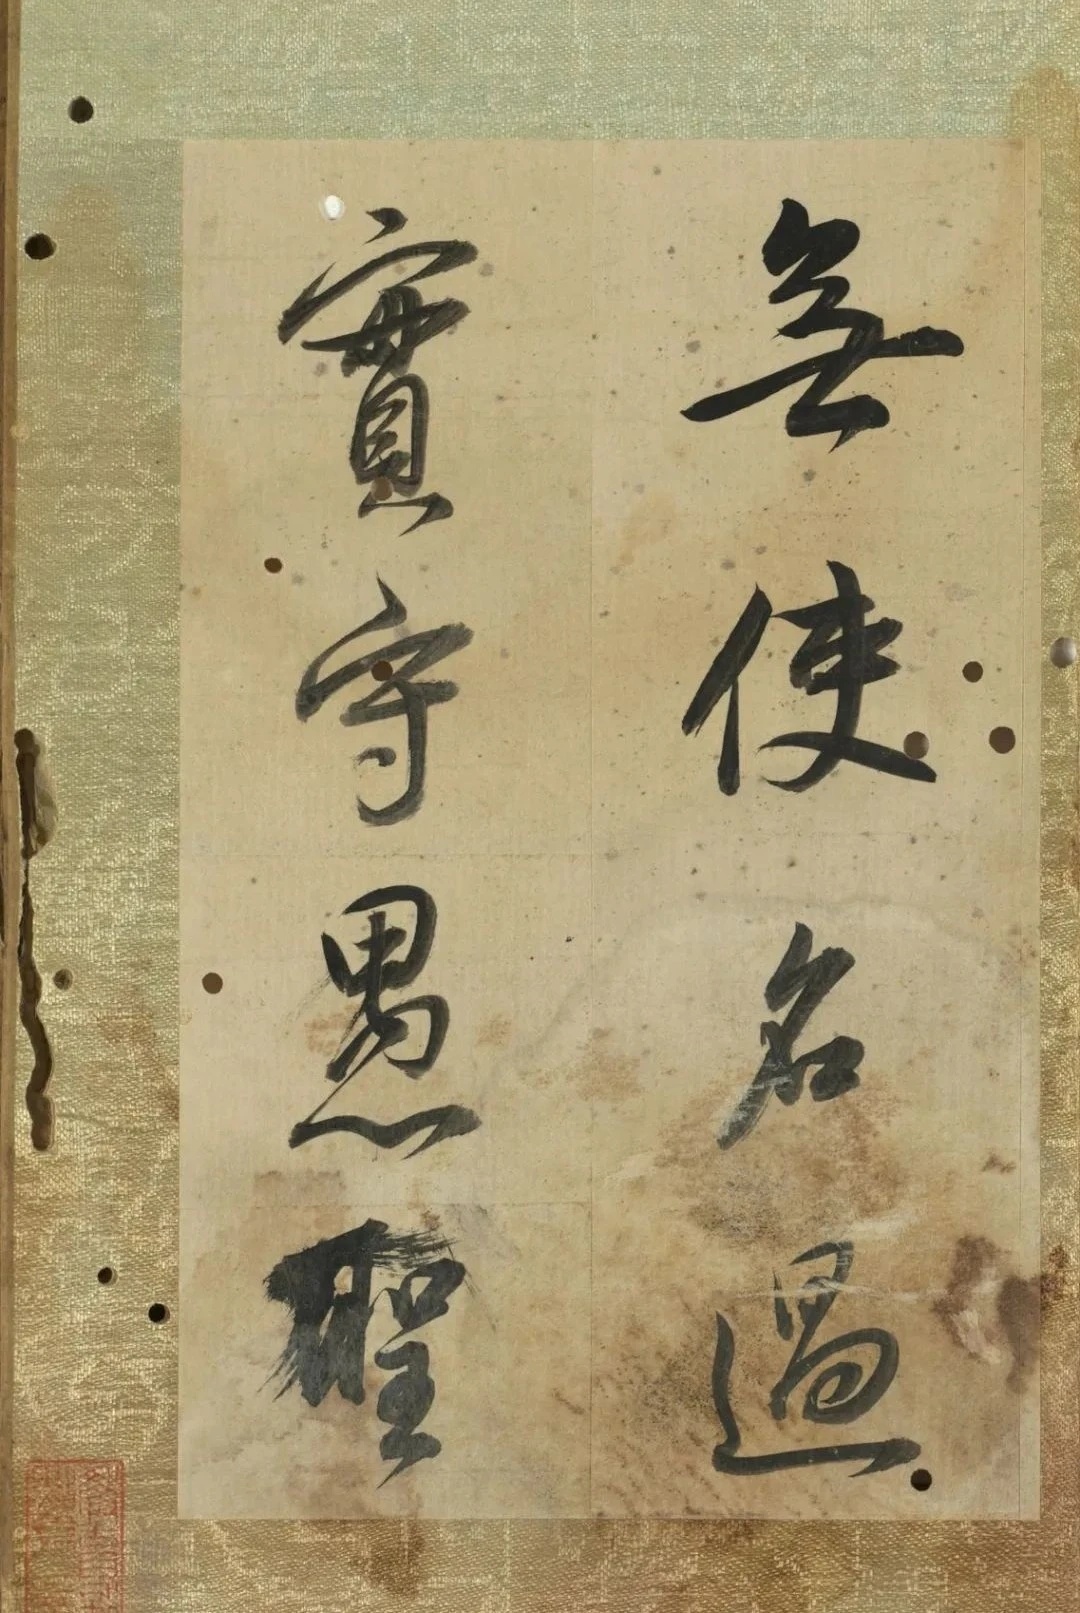 無使名過
實守愚聖